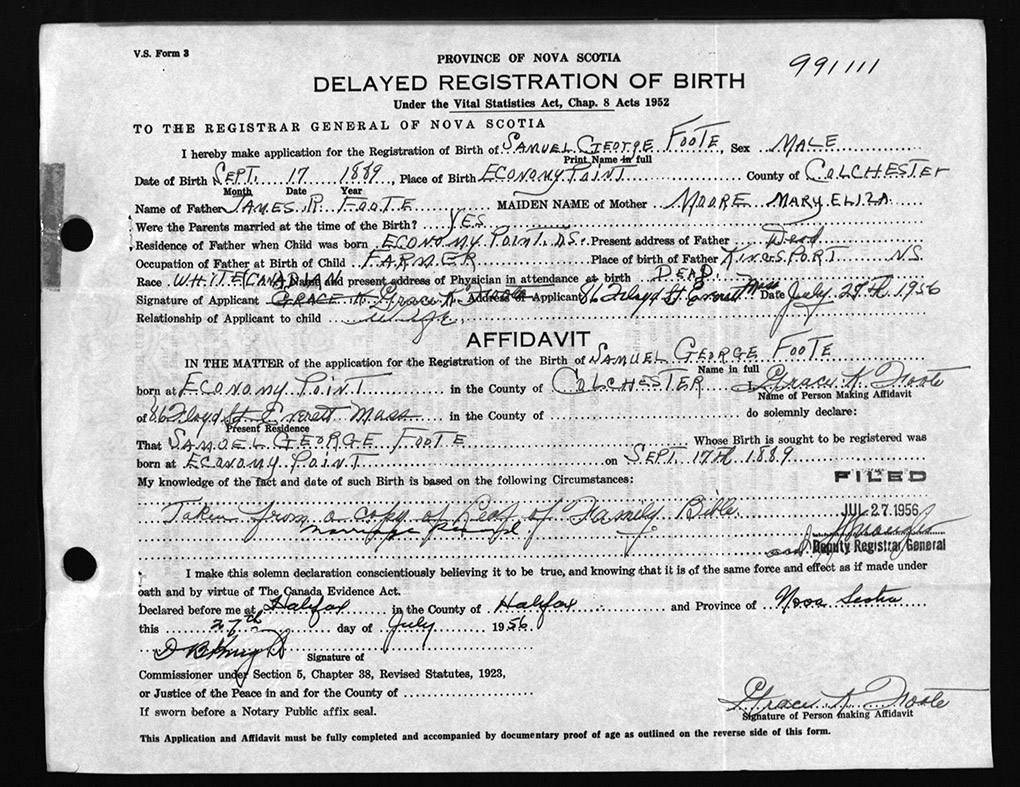 V.S. Form 3
PROVINCE OF NOVA SCOTIA
991111
DELAYED REGISTRATION OF BIRTH
Under the Vital Statistics Act, Chap. 8 Acts 1952
TO THE REGISTRAR GENERAL OF NOVA SCOTIA
I hereby make application for the Registration of Birth of SAMUEL GEORGE FOOTE, Sex MALE
Print Name in full
Date of Birth SEPT. 17 1889, Place of Birth ECONOMY POINT County of COLCHESTER
Month Date Year
Name of Father JAMES R. FOOTE MAIDEN NAME of Mother MOORE MARY ELIZA
Were the Parents married at the time of the Birth? YES
Residence of Father when Child was born ECONOMY POINT. N.S. Present address of Father Dead
Occupation of Father at Birth of Child FARMER Place of birth of Father KINGSPORT N.S.
Race WHITE CANADIAN Name and present address of Physician in attendance at birth DEAD.
Signature of Applicant GRACE A. Grace A. Foote Address of Applicant 86 Floyd St Everett Mass Date July 27th 1956
Relationship of Applicant to child wife
AFFIDAVIT
IN THE MATTER of the application for the Registration of the Birth of SAMUEL GEORGE FOOTE
Name in full
born at ECONOMY POINT in the County of COLCHESTER I, Grace A. Foote
Name of Person Making Affidavit
of 86 Floyd St Everett Mass in the County of do solemnly declare:
Present Residence
That SAMUEL GEORGE FOOTE Whose Birth is sought to be registered was
born at ECONOMY POINT on SEPT. 17th 1889
My knowledge of the fact and date of such Birth is based on the following Circumstances:
FILED
Taken from a copy of Leaf of Family Bible
JUL 27 1956
and marriage record
Deputy Registrar General
I make this solemn declaration conscientiously believing it to be true, and knowing that it is of the same force and effect as if made under
oath and by virtue of The Canada Evidence Act.
Declared before me at Halifax in the County of Halifax and Province of Nova Scotia
this 27th day of July 1956
Signature of
Commissioner under Section 5, Chapter 38, Revised Statutes, 1923,
or Justice of the Peace in and for the County of
Grace A. Foote
If sworn before a Notary Public affix seal.
Signature of Person making Affidavit
This Application and Affidavit must be fully completed and accompanied by documentary proof of age as outlined on the reverse side of this form.